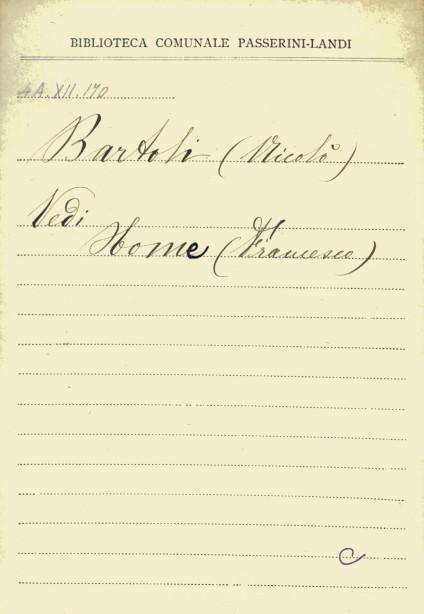 BIBLIOTECA COMUNALE PASSERINI-LANDI
4A.XII.170
Bartoli (Nicolò)
Vedi
Home (Francesco)
C